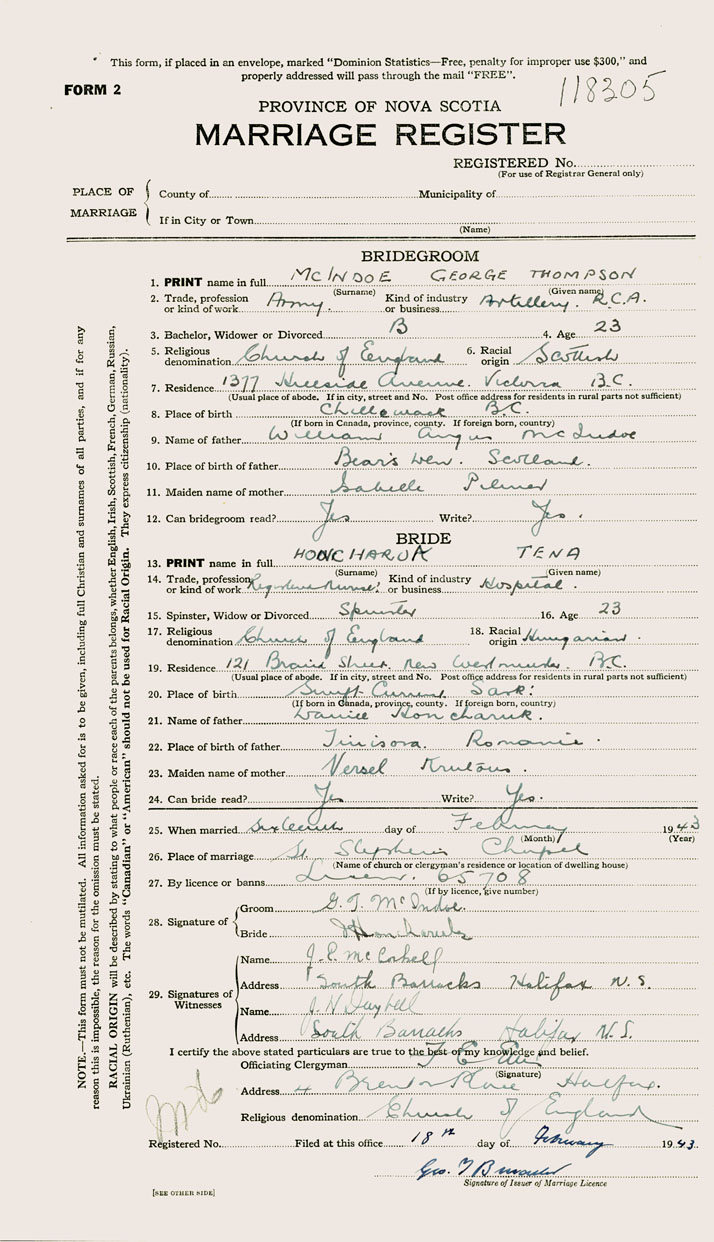 This form, if placed in an envelope, marked "Dominion Statistics—Free, penalty for improper use $300," and
properly addressed will pass through the mail "FREE".
FORM 2
118305
PROVINCE OF NOVA SCOTIA
MARRIAGE REGISTER
REGISTERED No.
(For use of Registrar General only)
PLACE OF MARRIAGE
County of Municipality of
If in City or Town
(Name)
BRIDEGROOM
1. PRINT name in full McINDOE GEORGE THOMPSON
(Surname) (Given name)
2. Trade, profession or kind of work Army. Kind of industry or business Artillery. R.C.A.
3. Bachelor, Widower or Divorced B 4. Age 23
5. Religious denomination Church of England 6. Racial origin Scottish
7. Residence 1377 Hillside Avenue. Victoria B.C.
(Usual place of abode. If in city, street and No. Post office address for residents in rural parts not sufficient)
8. Place of birth Chilliwack B.C.
(If born in Canada, province, county. If foreign born, country)
9. Name of father William Angus McIndoe
10. Place of birth of father Bear's Den. Scotland.
11. Maiden name of mother Isabelle
12. Can bridegroom read? Yes Write? Yes.
BRIDE
13. PRINT name in full HONCHARUK TENA
(Surname) (Given name)
14. Trade, profession or kind of work Registered Nurse Kind of industry or business Hospital.
15. Spinster, Widow or Divorced Spinster 16. Age 23
17. Religious denomination Church of England 18. Racial origin Hungarian.
19. Residence 121 Braid Street. New Westminster. B.C.
(Usual place of abode. If in city, street and No. Post office address for residents in rural parts not sufficient)
20. Place of birth Swift Current Sask.
(If born in Canada, province, county. If foreign born, country)
21. Name of father Honcharuk.
22. Place of birth of father Timisora. Romania.
23. Maiden name of mother Versel
24. Can bride read? Yes Write? Yes.
25. When married sixteenth day of February 1943
(Month) (Year)
26. Place of marriage St. Stephen's Chapel
(Name of church or clergyman's residence or location of dwelling house)
27. By licence or banns 65708
(If by licence, give number)
28. Signature of Groom G.T. McIndoe.
Bride Honcharuk
29. Signatures of Witnesses Name J.P. McCorkell
Address South Barracks Halifax N.S.
Name J.N.
Address South Barracks Halifax N.S.
I certify the above stated particulars are true to the best of my knowledge and belief.
Officiating Clergyman
(Signature)
Address 4 Halifax.
Religious denomination Church of England
Registered No. Filed at this office 18th day of February 1943.
Geo. T
Signature of Issuer of Marriage Licence
[SEE OTHER SIDE]
NOTE.—This form must not be mutilated. All information asked for is to be given, including full Christian and surnames of all parties, and if for any
reason this is impossible, the reason for the omission must be stated.
RACIAL ORIGIN will be described by stating to what people or race each of the parents belongs, whether English, Irish, Scottish, French, German, Russian,
Ukrainian (Ruthenian), etc. The words "Canadian" or "American" should not be used for Racial Origin. They express citizenship (nationality).